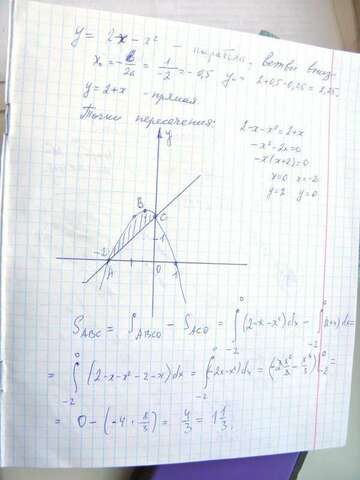 y = 2-x-x² - парабола, ветви вниз.
x₀ = -b/2a = 1/-2 = -0,5 y₀ = 2+0,5-0,25 = 2,25.
y = 2+x - прямая
Точки пересечения:
2-x-x² = 2+x
-x²-2x=0
-x(x+2)=0
x=0 x=-2
y=2 y=0
y
B
C
1
-2
A
0
1
S_ABC = S_ABCO - S_ACO = ∫₋₂⁰ (2-x-x²)dx - ∫₋₂⁰ (2+x)dx =
= ∫₋₂⁰ (2-x-x²-2-x)dx = ∫₋₂⁰ (-2x-x²)dx = (-2x²/2 - x³/3)|₋₂⁰ =
= 0 - (-4 + 8/3) = 4/3 = 1 1/3.